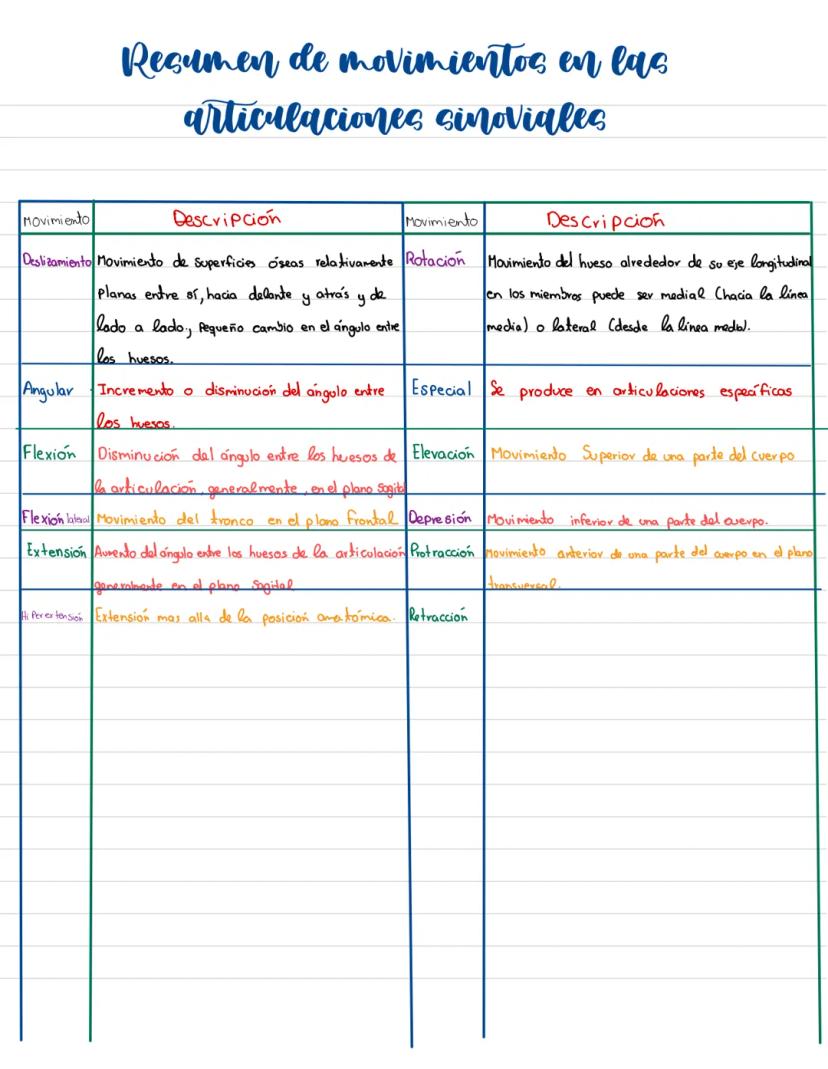 Resumen de movimientos en las
articulaciones sinoviales
Movimiento
Descripción
Movimiento
Descripción
Deslizamiento
Movimiento de superficies óseas relativamente
Planas entre sí, hacia delante y atrás y de
lado a lado; Pequeño cambio en el ángulo entre
los huesos.
Rotación
Movimiento del hueso alrededor de su eje longitudinal
en los miembros puede ser medial (hacia la línea
media) o lateral (desde la línea media).
Angular
Incremento o disminución del ángulo entre
los huesos.
Especial
Se produce en articulaciones específicas
Flexión
Disminución del ángulo entre los huesos de
la articulación, generalmente, en el plano sagital
Elevación
Movimiento Superior de una parte del cuerpo
Flexión lateral
Movimiento del tronco en el plano frontal
Depresión
Movimiento inferior de una parte del cuerpo.
Extensión
Aumento del ángulo entre los huesos de la articulación
generalmente en el plano Sagital
Protracción
Movimiento anterior de una parte del cuerpo en el plano
transversal.
Hiperextensión
Extensión mas alla de la posición anatómica.
Retracción